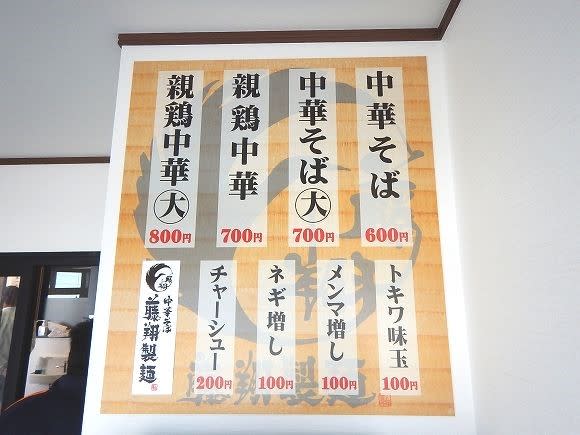 中華そば
600円
中華そば大
700円
親鶏中華
700円
親鶏中華大
800円
トキワ味玉
100円
メンマ増し
100円
ネギ増し
100円
チャーシュー
200円
中華そば
藤翔製麺
藤翔製麺